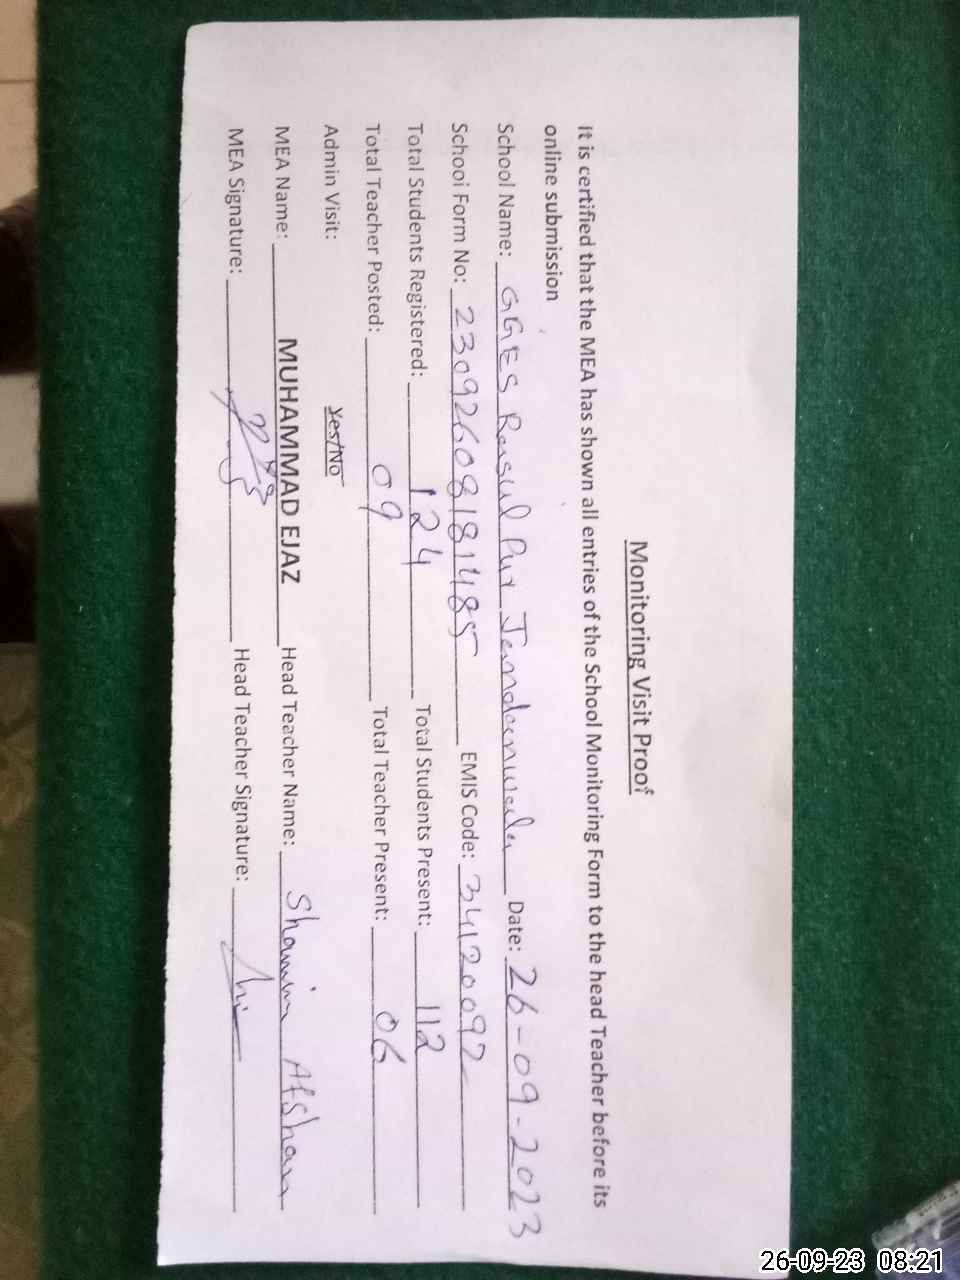 Monitoring Visit Proof
It is certified that the MEA has shown all entries of the School Monitoring Form to the head Teacher before its
online submission
School Name: GGES Rasul Pur Date: 26-09-2023
School Form No: 23092608181485 EMIS Code: 34120092
Total Students Registered: 124 Total Students Present: 112
Total Teacher Posted: 09 Total Teacher Present: 06
Admin Visit: Yes/No
MEA Name: MUHAMMAD EJAZ Head Teacher Name: Shamim Afshan
MEA Signature: Head Teacher Signature:
26-09-23 08:21